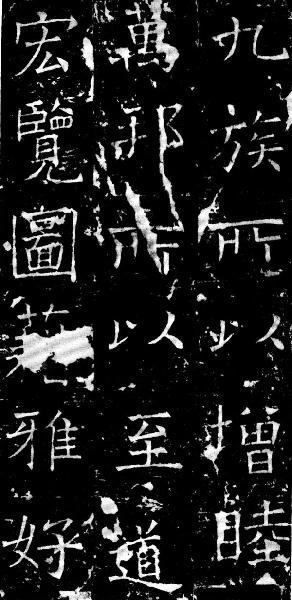 九族所以增睦
萬邦所以至道
宏覽圖雅好